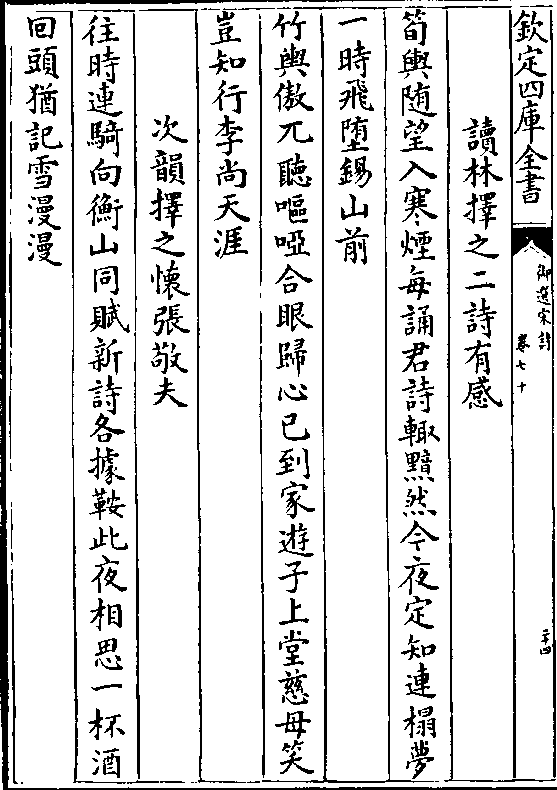 欽定四庫全書
御選宋詩
卷七十
二十四
讀林擇之二詩有感
筍輿随望入寒煙每誦君詩輙黯然今夜定知連榻夢
一時飛堕錫山前
竹輿傲兀聽嘔啞合眼歸心已到家遊子上堂慈母笑
豈知行李尚天涯
次韻擇之懷張敬夫
往時連騎向衡山同賦新詩各據鞍此夜相思一杯酒
回頭猶記雪漫漫